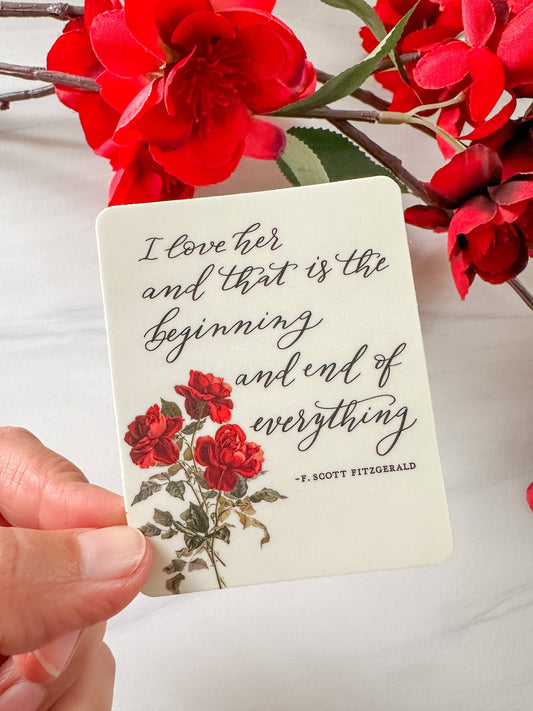 I love her
and that is the
beginning
and end of
everything
-F. SCOTT FITZGERALD